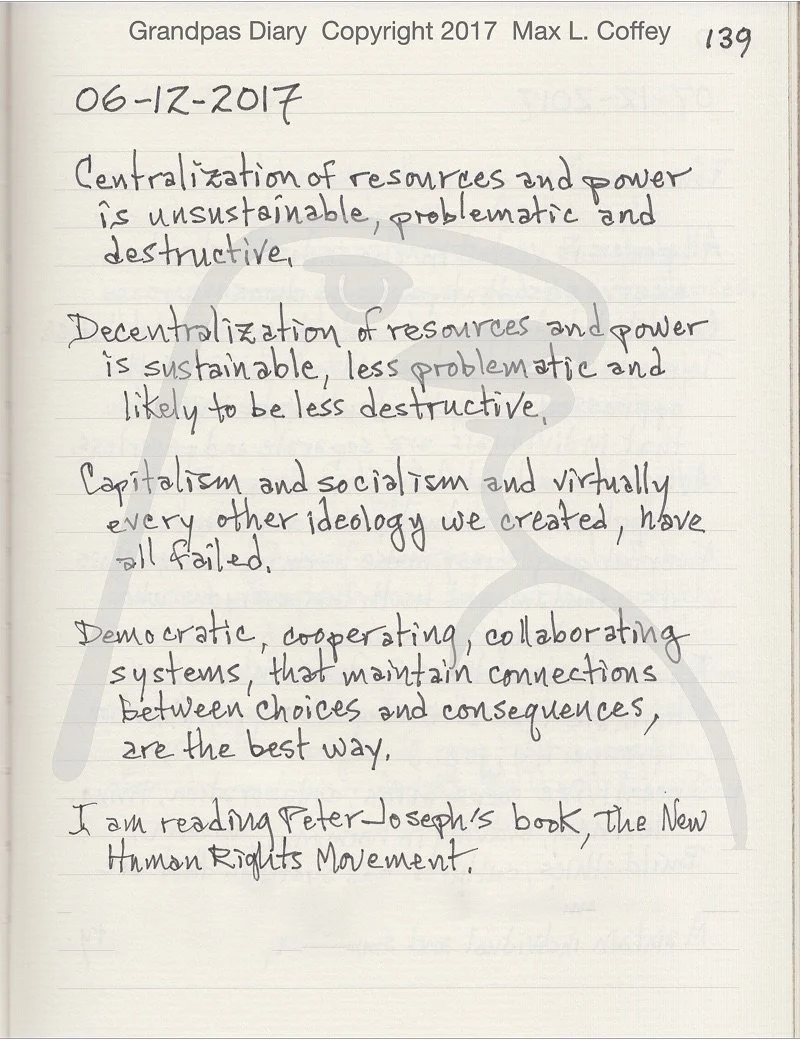 Grandpas Diary Copyright 2017 Max L. Coffey 139
06-12-2017
Centralization of resources and power
is unsustainable, problematic and
destructive.
Decentralization of resources and power
is sustainable, less problematic and
likely to be less destructive.
Capitalism and socialism and virtually
every other ideology we created, have
all failed.
Democratic, cooperating, collaborating
systems, that maintain connections
between choices and consequences,
are the best way.
I am reading Peter Joseph's book, The New
Human Rights Movement.